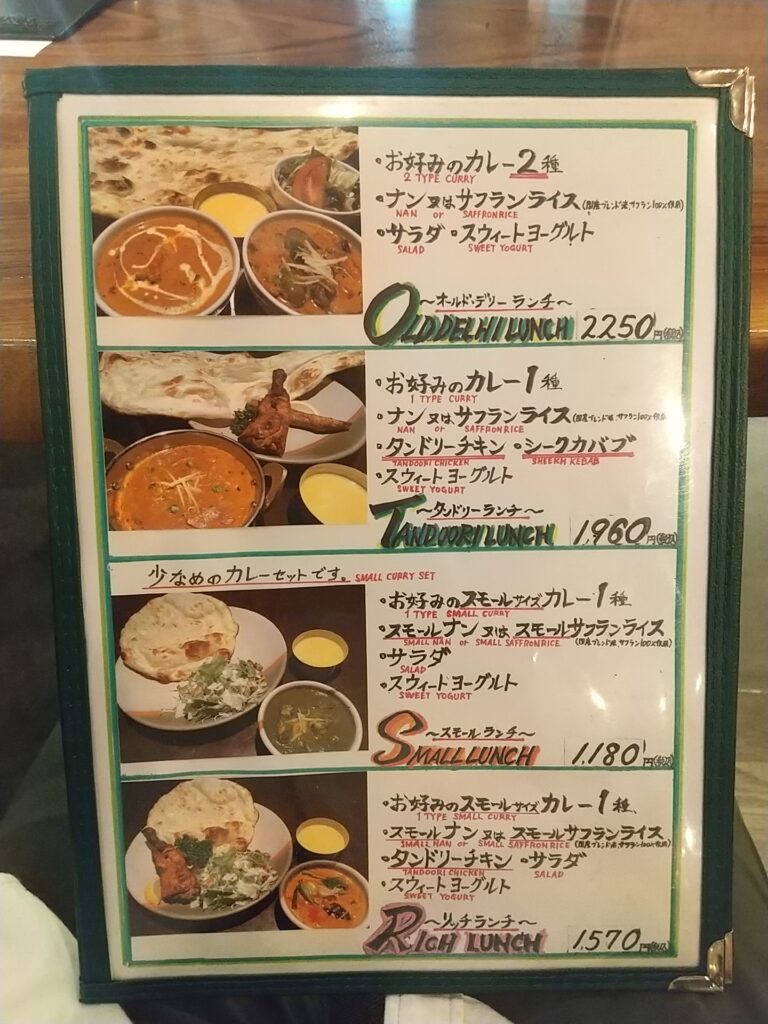 ・お好みのカレー2種
2 TYPE CURRY
・ナン又はサフランライス(国産ブレンド米、サフラン100%使用)
NAN or SAFFRON RICE
・サラダ ・スウィートヨーグルト
SALAD SWEET YOGURT
〜オールド・デリーランチ〜
OLD DELHI LUNCH 2250円(税込)
・お好みのカレー1種
1 TYPE CURRY
・ナン又はサフランライス(国産ブレンド米、サフラン100%使用)
NAN or SAFFRON RICE
・タンドリーチキン ・シークカバブ
TANDOORI CHICKEN SHEEKH KEBAB
・スウィートヨーグルト
SWEET YOGURT
〜タンドリーランチ〜
TANDOORI LUNCH 1,960円(税込)
少なめのカレーセットです。SMALL CURRY SET
・お好みのスモールサイズカレー1種
1 TYPE SMALL CURRY
・スモールナン又はスモールサフランライス
SMALL NAN or SMALL SAFFRON RICE (国産ブレンド米、サフラン100%使用)
・サラダ
SALAD
・スウィートヨーグルト
SWEET YOGURT
〜スモールランチ〜
SMALL LUNCH 1,180円(税込)
・お好みのスモールサイズカレー1種
1 TYPE SMALL CURRY
・スモールナン又はスモールサフランライス
SMALL NAN or SMALL SAFFRON RICE (国産ブレンド米、サフラン100%使用)
・タンドリーチキン ・サラダ
TANDOORI CHICKEN SALAD
・スウィートヨーグルト
SWEET YOGURT
〜リッチランチ〜
RICH LUNCH 1,570円(税込)